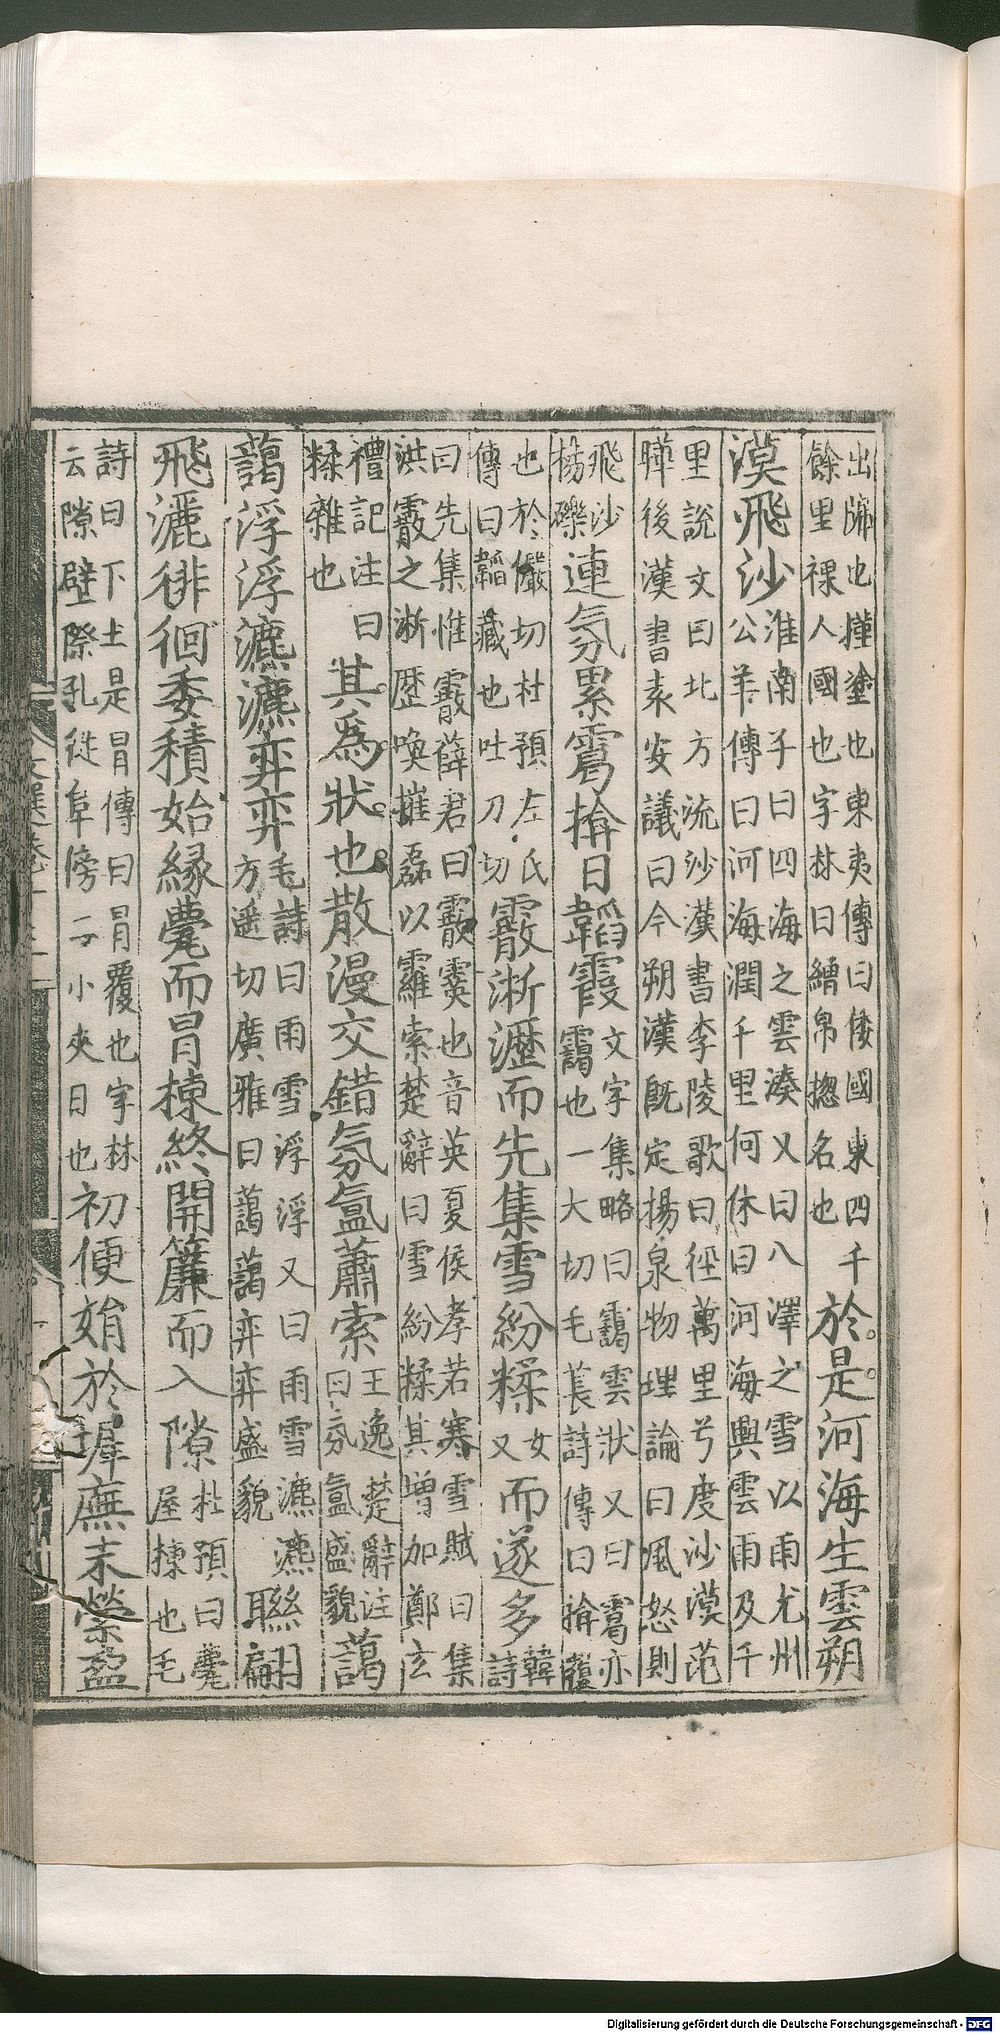 出牖也墐塗也東夷傳曰倭國東四千
餘里裸人國也字林曰繒帛揔名也
於是河海生雲朔
漠飛沙
淮南子曰四海之雲湊又曰八澤之雪以雨尤州
公羊傳曰河海潤千里何休曰河海興雲雨及千
里說文曰北方流沙漢書李陵歌曰徑萬里兮度沙漠范
曄後漢書袁安議曰今朔漢旣定揚泉物理論曰風怒則
飛沙
揚礫
連氛累靄揜日韜霞
文字集略曰靄雲狀又曰靄亦
靄也一大切毛萇詩傳曰揜
也於儼切杜預左氏
傳曰韜藏也吐刀切
霰淅瀝而先集雪紛糅
女
又
而遂多
韓
詩
曰先集惟霰薛君曰霰霙也音英夏侯孝若寒雪賦曰集
洪霰之淅歷喚摧磊以羅索楚辭曰雪紛糅其增加鄭玄
禮記注曰
糅雜也
其爲狀也散漫交錯氛氳蕭索
王逸楚辭注
曰氛氳盛貌
藹
藹浮浮瀌瀌弈弈
毛詩曰雨雪浮浮又曰雨雪瀌瀌
方遥切廣雅曰藹藹弈弈盛貌
聯翩
飛灑徘徊委積始縁甍而冒棟終開簾而入隙
杜預曰甍
屋棟也毛
詩曰下土是冒傳曰冒覆也字林
云隙壁際孔從阜傍二小夾日也
初便娟於墀廡末縈盈
Digitalisierung gefördert durch die Deutsche Forschungsgemeinschaft - DFG